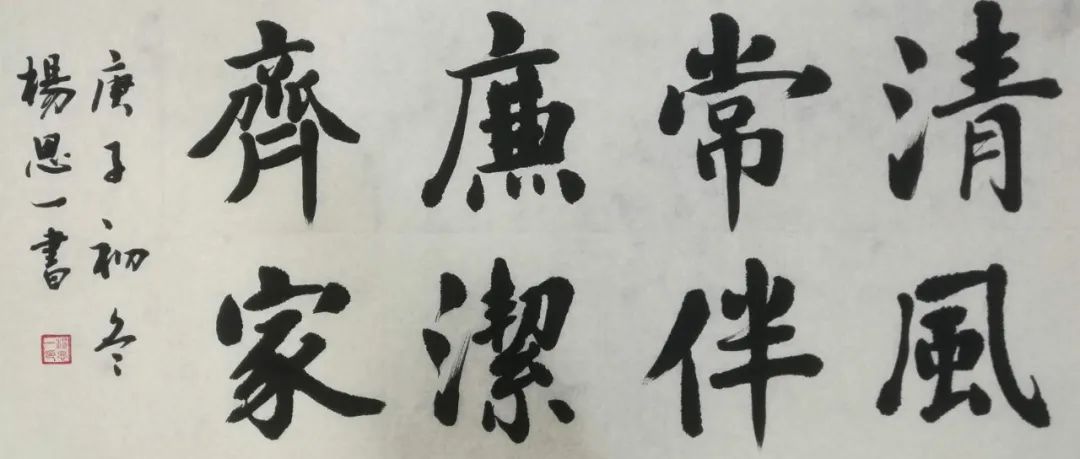 清風
常伴
廉潔
齊家
庚子初冬
楊思一書